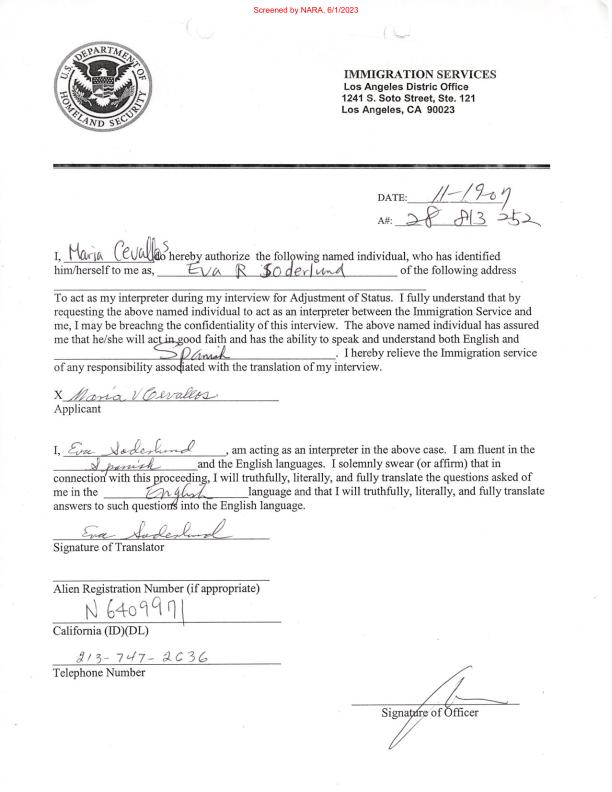 Screened by NARA, 6/1/2023
U.S. DEPARTMENT OF HOMELAND SECURITY
IMMIGRATION SERVICES
Los Angeles Distric Office
1241 S. Soto Street, Ste. 121
Los Angeles, CA 90023
DATE: 11-19-07
A#: 28 813 252
I, Maria Cevallos do hereby authorize the following named individual, who has identified
him/herself to me as, Eva R Soderlund of the following address
To act as my interpreter during my interview for Adjustment of Status. I fully understand that by
requesting the above named individual to act as an interpreter between the Immigration Service and
me, I may be breachng the confidentiality of this interview. The above named individual has assured
me that he/she will act in good faith and has the ability to speak and understand both English and
Spanish. I hereby relieve the Immigration service
of any responsibility associated with the translation of my interview.
X Maria V Cevallos
Applicant
I, Eva Soderlund, am acting as an interpreter in the above case. I am fluent in the
Spanish and the English languages. I solemnly swear (or affirm) that in
connection with this proceeding, I will truthfully, literally, and fully translate the questions asked of
me in the English language and that I will truthfully, literally, and fully translate
answers to such questions into the English language.
Eva Soderlund
Signature of Translator
Alien Registration Number (if appropriate)
N 6409971
California (ID)(DL)
213-747-2636
Telephone Number
Signature of Officer